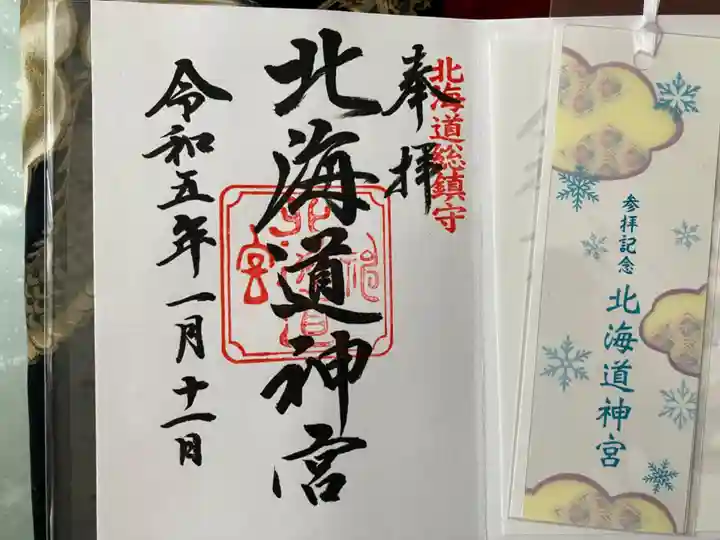 参拝記念
北海道神宮
北海道総鎮守
奉拝
北海道神宮
令和五年一月十一日